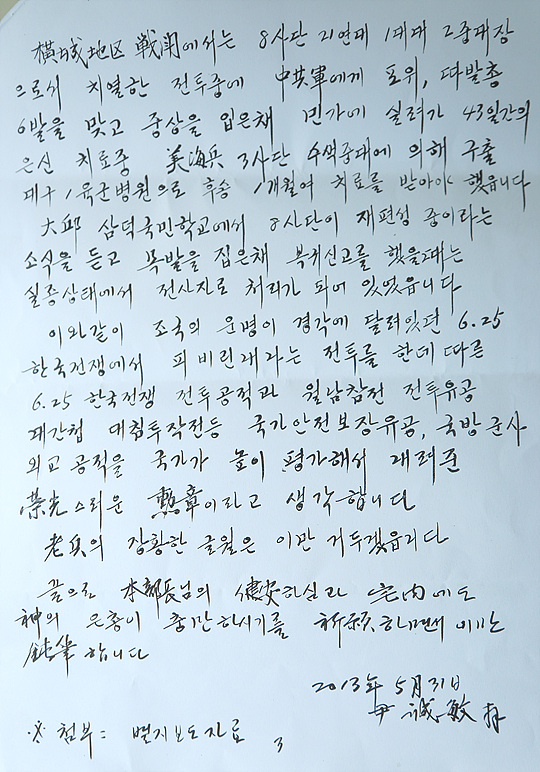 橫城地区 戰闘에서는 8사단 21연대 1대대 2중대장
으로서 치열한 전투중에 中共軍에게 포위, 따발총
6발을 맞고 중상을 입은채 민가에 실려가 43일간의
은신 치료중 美海兵 3사단 수색중대에 의해 구출
대구 1육군병원으로 후송 1개월여 치료를 받아야 했읍니다
大邱 삼덕국민학교에서 8사단이 재편성 중이라는
소식을 듣고 목발을 집은채 복귀신고를 했을때는
실종상태에서 전사자로 처리가 되어 있었읍니다
이와같이 조국의 운명이 경각에 달려있던 6.25
한국전쟁에서 피비린내라는 전투를 한데 따른
6.25 한국전쟁 전투공적과 월남참전 전투유공
대간첩 대침투작전등 국가안전보장유공, 국방군사
외교 공적을 국가가 높이 평가해서 내려준
榮光스러운 勲章이라고 생각합니다
老兵의 장황한 글월은 이만 거두겠읍니다
끝으로 本部長님의 健安하심과 宅内에도
神의 은총이 충만하시기를 祈願하면서 이만
鈍筆합니다
2013年 5月31日
尹誠敏 拜
※ 첨부: 별지보도자료
3